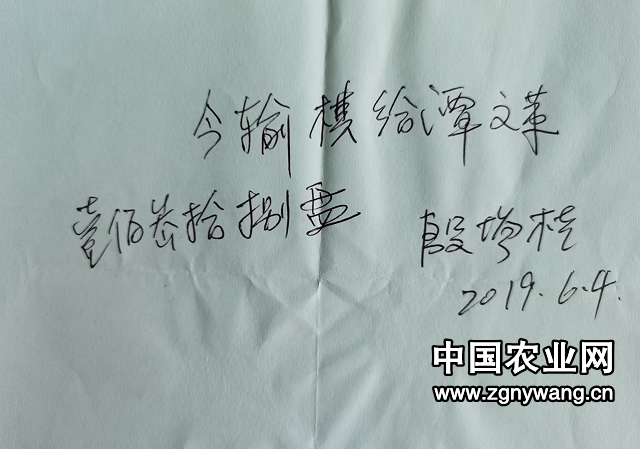 今输棋给潭文革
壹佰叁拾捌盘
殷增桂
2019.6.4.
中国农业网
www.zgnywang.cn